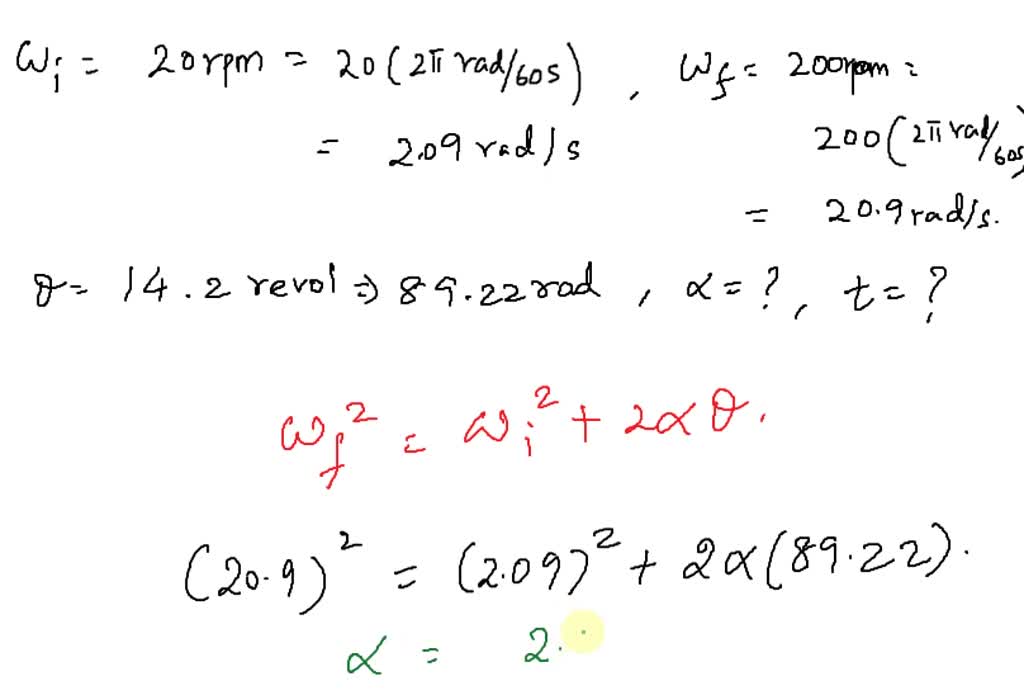 ωi = 20rpm = 20(2π rad/60s) , ωf = 200rpm =
= 2.09 rad/s 200(2π rad/60s)
= 20.9 rad/s.
θ = 14.2 revol ⇒ 89.22 rad , α = ? , t = ?
ωf² = ωi² + 2αθ.
(20.9)² = (2.09)² + 2α(89.22).
α = 2.